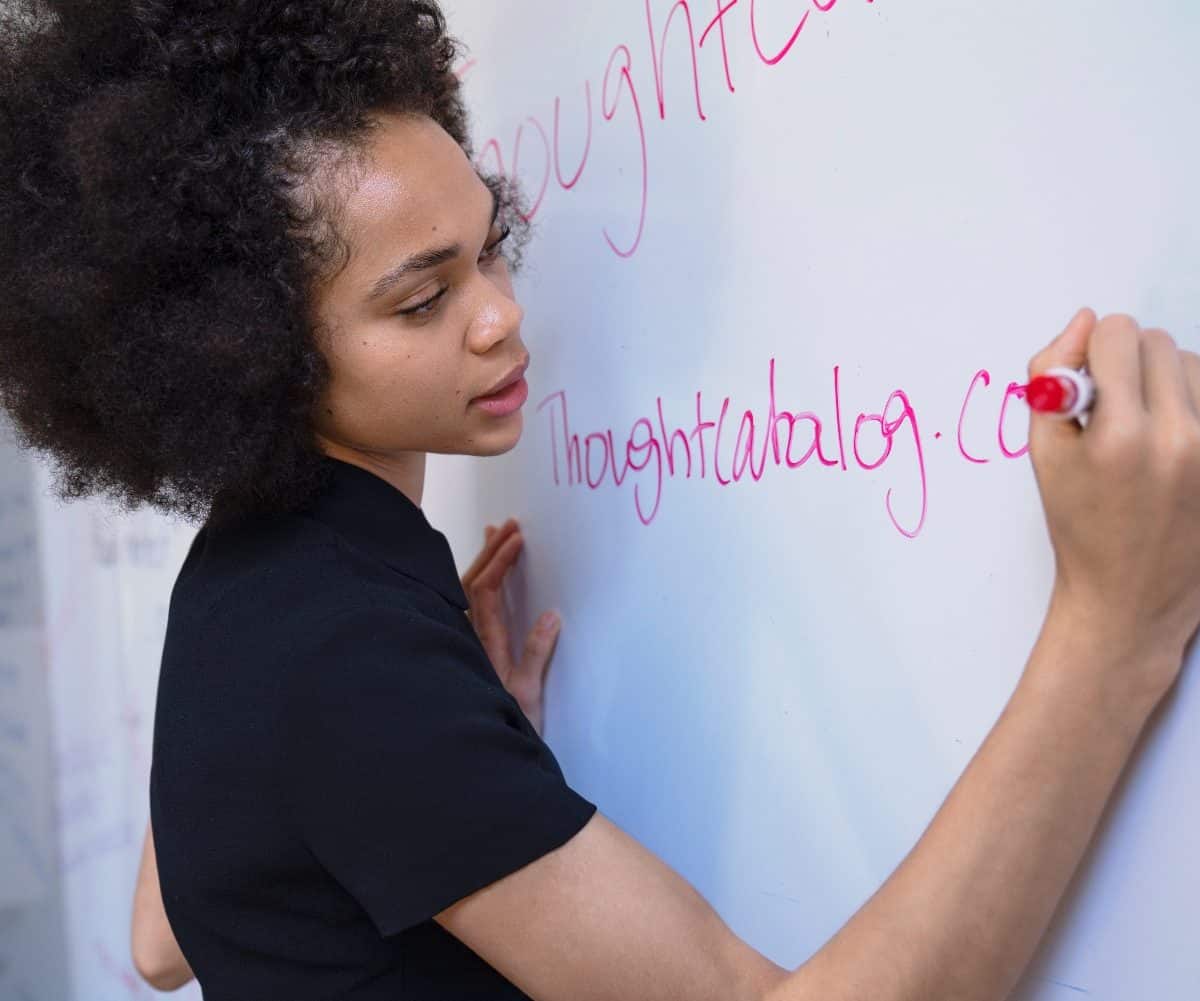 Thought
Thoughtcatalog.co